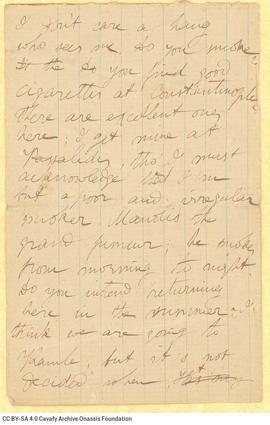 I don't care a hang
who sees me. Do you smoke?
do you find good
cigarettes at Constantinople?
there are excellent ones
here; I get mine at
tho' I must
acknowledge that I'm
but a poor and irregular
smoker. Manolis the
grand fumeur; he smokes
from morning to night.
Do you intend returning
here in the summer. I
think we are going to
Ramle, but it is not
decided when.
CC BY-SA 4.0 Cavafy Archive Onassis Foundation